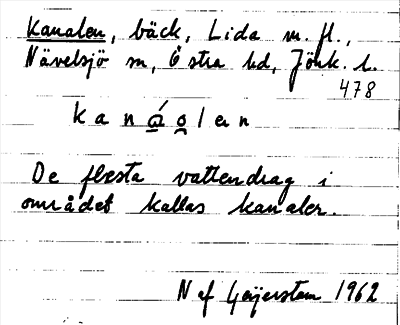 Kanalen, bäck, Lida m. fl.,
Nävelsjö sn, Östra hd, Jönk. l.
478
kanálen
De flesta vattendrag i
området kallas kanaler.
N af Geijerstam 1962